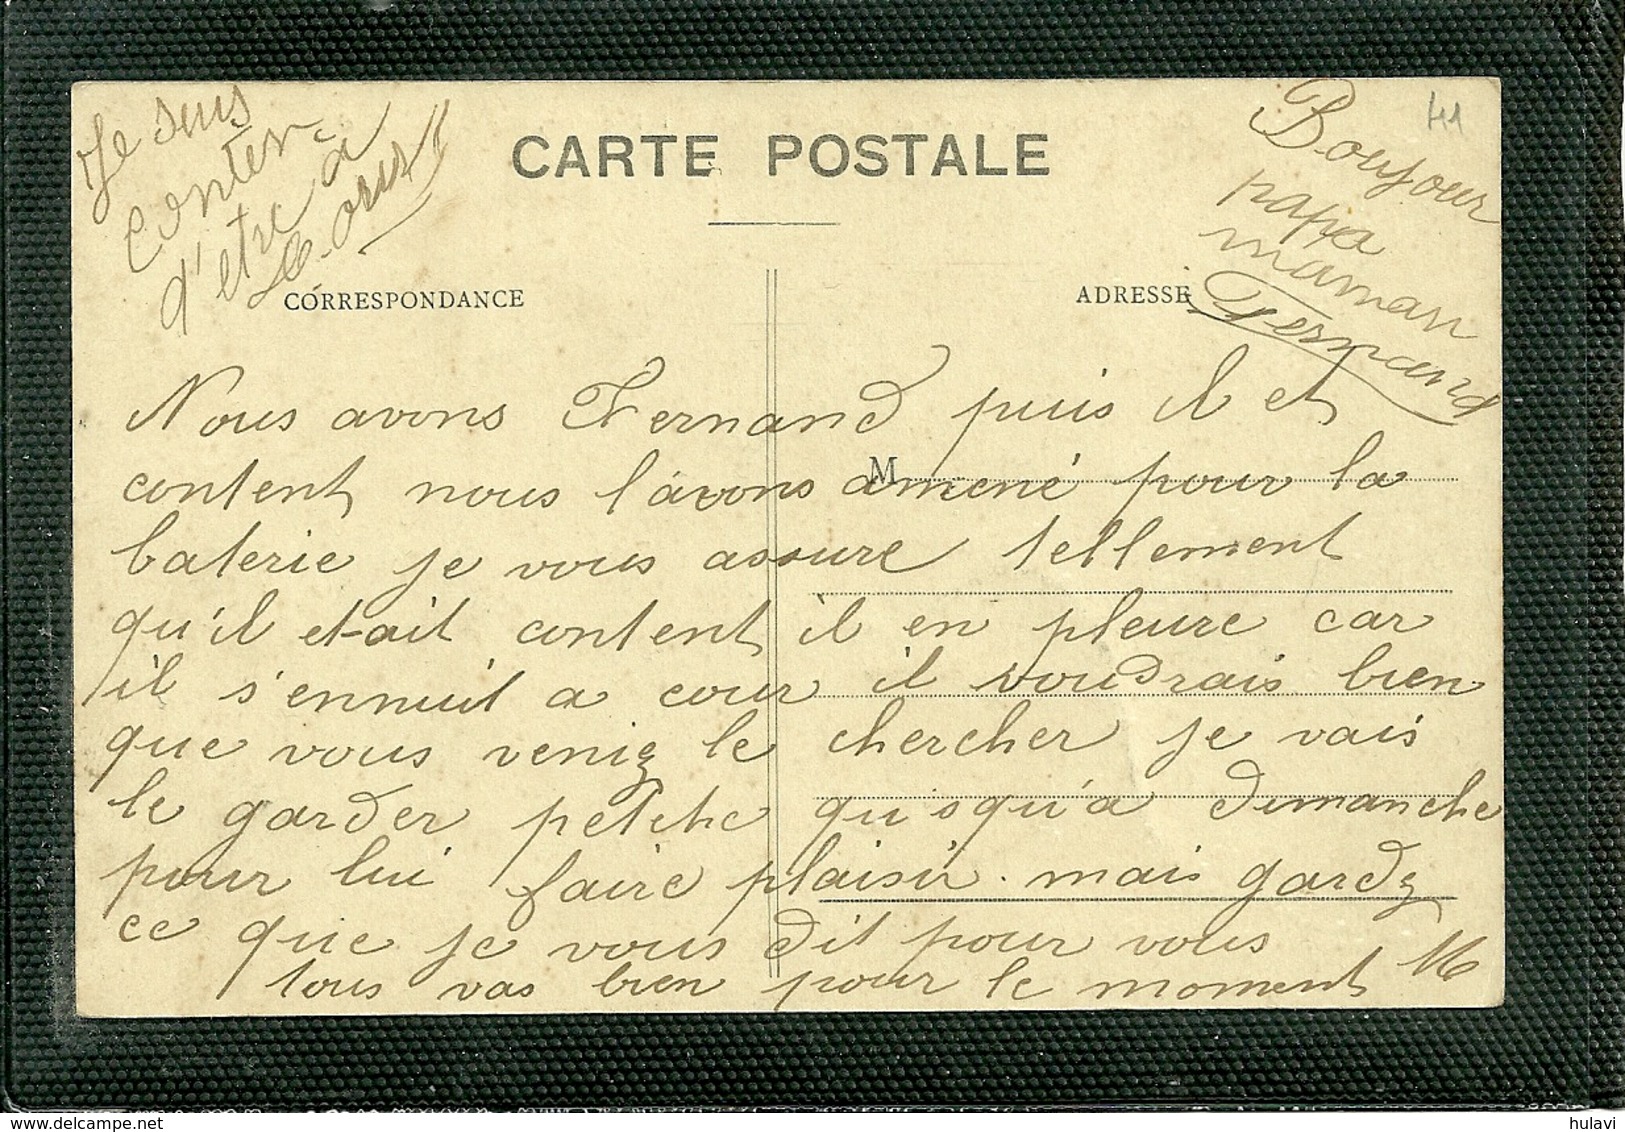 Je suis
conten
d'etre à
Bonjour
papa
maman
Fernand
41
CARTE POSTALE
CORRESPONDANCE
ADRESSE
M
Nous avons Fernand puis il et
content nous l'avons amené pour la
baterie je vous assure tellement
qu'il etait content il en pleure car
il s'ennuit a cour il voudrais bien
que vous veniz le chercher je vais
le garder petetre qu'isqu'a dimanche
pour lui faire plaisir. mais gardz
ce que je vous dit pour vous
tous vas bien pour le moment M
hulavi
delcampe.net